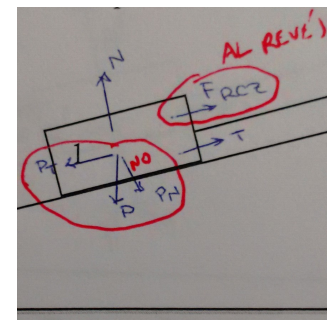 AL REVÉS
N
F ROZ
T
PT
NO
P
PN